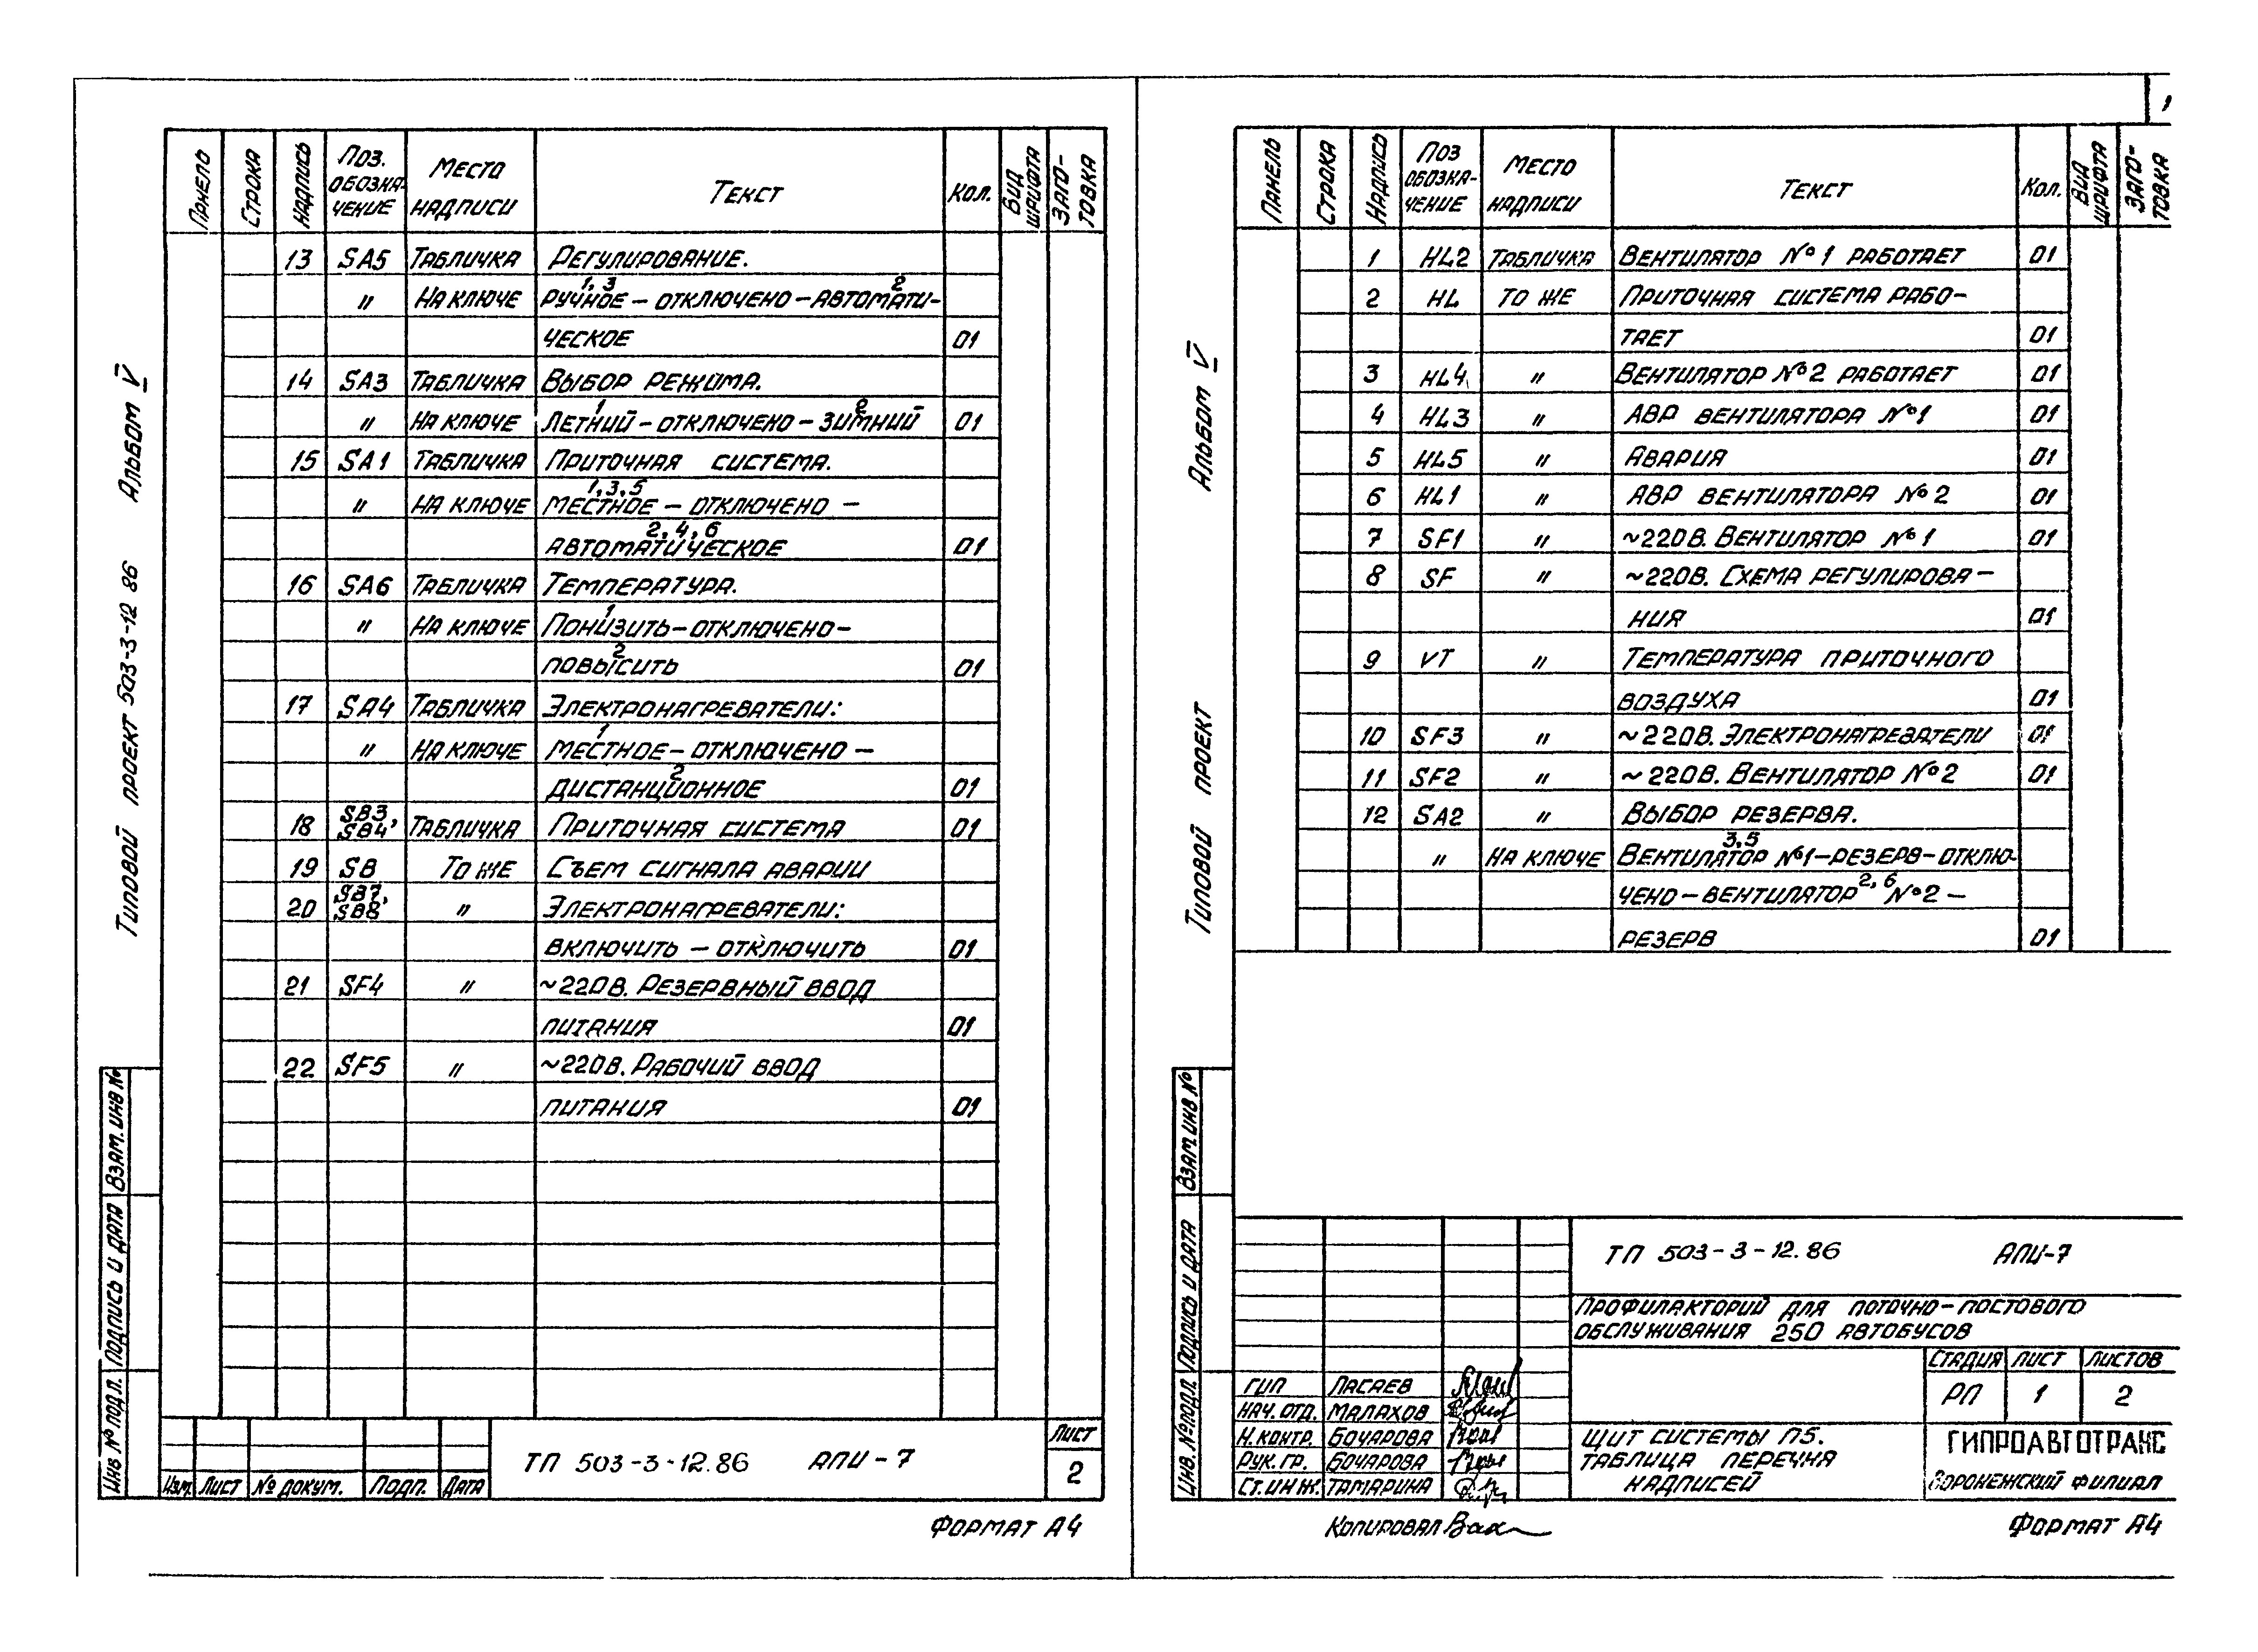 Типовой проект 503-3-12 86 Альбом V
Панель Строка Надпись Поз. обозна- чение Место надписи Текст Кол. Вид шрифта Заго- товка
13 SA5 Табличка Регулирование.
1, 3 2
" На ключе Ручное – отключено – автомати-
ческое 01
14 SA3 Табличка Выбор режима.
1 2
" На ключе Летний – отключено – зимний 01
15 SA1 Табличка Приточная система.
1, 3, 5
" На ключе Местное – отключено –
2, 4, 6
автоматическое 01
16 SA6 Табличка Температура.
1
" На ключе Понизить – отключено –
2
повысить 01
17 SA4 Табличка Электронагреватели:
1
" На ключе Местное – отключено –
2
дистанционное 01
18 SB3, SB4 Табличка Приточная система 01
19 SB То же Съем сигнала аварии
20 SB7, SB8 " Электронагреватели:
включить – отключить 01
21 SF4 " ~220В. Резервный ввод
питания 01
22 SF5 " ~220В. Рабочий ввод
питания 01
Инв № подл. Подпись и дата Взам. инв №
Изм. Лист № докум. Подп. Дата
ТП 503-3-12.86 АПИ-7
Лист
2
Формат А4
1
Типовой проект Альбом V
Панель Строка Надпись Поз обозна- чение Место надписи Текст Кол. Вид шрифта Заго- товка
1 HL2 Табличка Вентилятор №1 работает 01
2 HL То же Приточная система рабо-
тает 01
3 HL4 " Вентилятор №2 работает 01
4 HL3 " АВР вентилятора №1 01
5 HL5 " Авария 01
6 HL1 " АВР вентилятора №2 01
7 SF1 " ~220В. Вентилятор №1 01
8 SF " ~220В. Схема регулирова –
ния 01
9 VT " Температура приточного
воздуха 01
10 SF3 " ~220В. Электронагреватели 01
11 SF2 " ~220В. Вентилятор №2 01
12 SA2 " Выбор резерва.
3, 5
" На ключе Вентилятор №1–резерв–отклю-
2, 6
чено – вентилятор №2 –
резерв 01
Инв. № подл. Подпись и дата Взам. инв №
ТП 503-3-12.86 АПИ-7
Профилакторий для поточно-постового
обслуживания 250 автобусов
Стадия Лист Листов
РП 1 2
ГИП Ласаев
Нач. отд. Малахов
Н. контр. Бочарова
Рук. гр. Бочарова
Ст. инж. Тамарина
Щит системы П5.
Таблица перечня
надписей
ГИПРОАВТОТРАНС
Воронежский филиал
Копировал
Формат А4